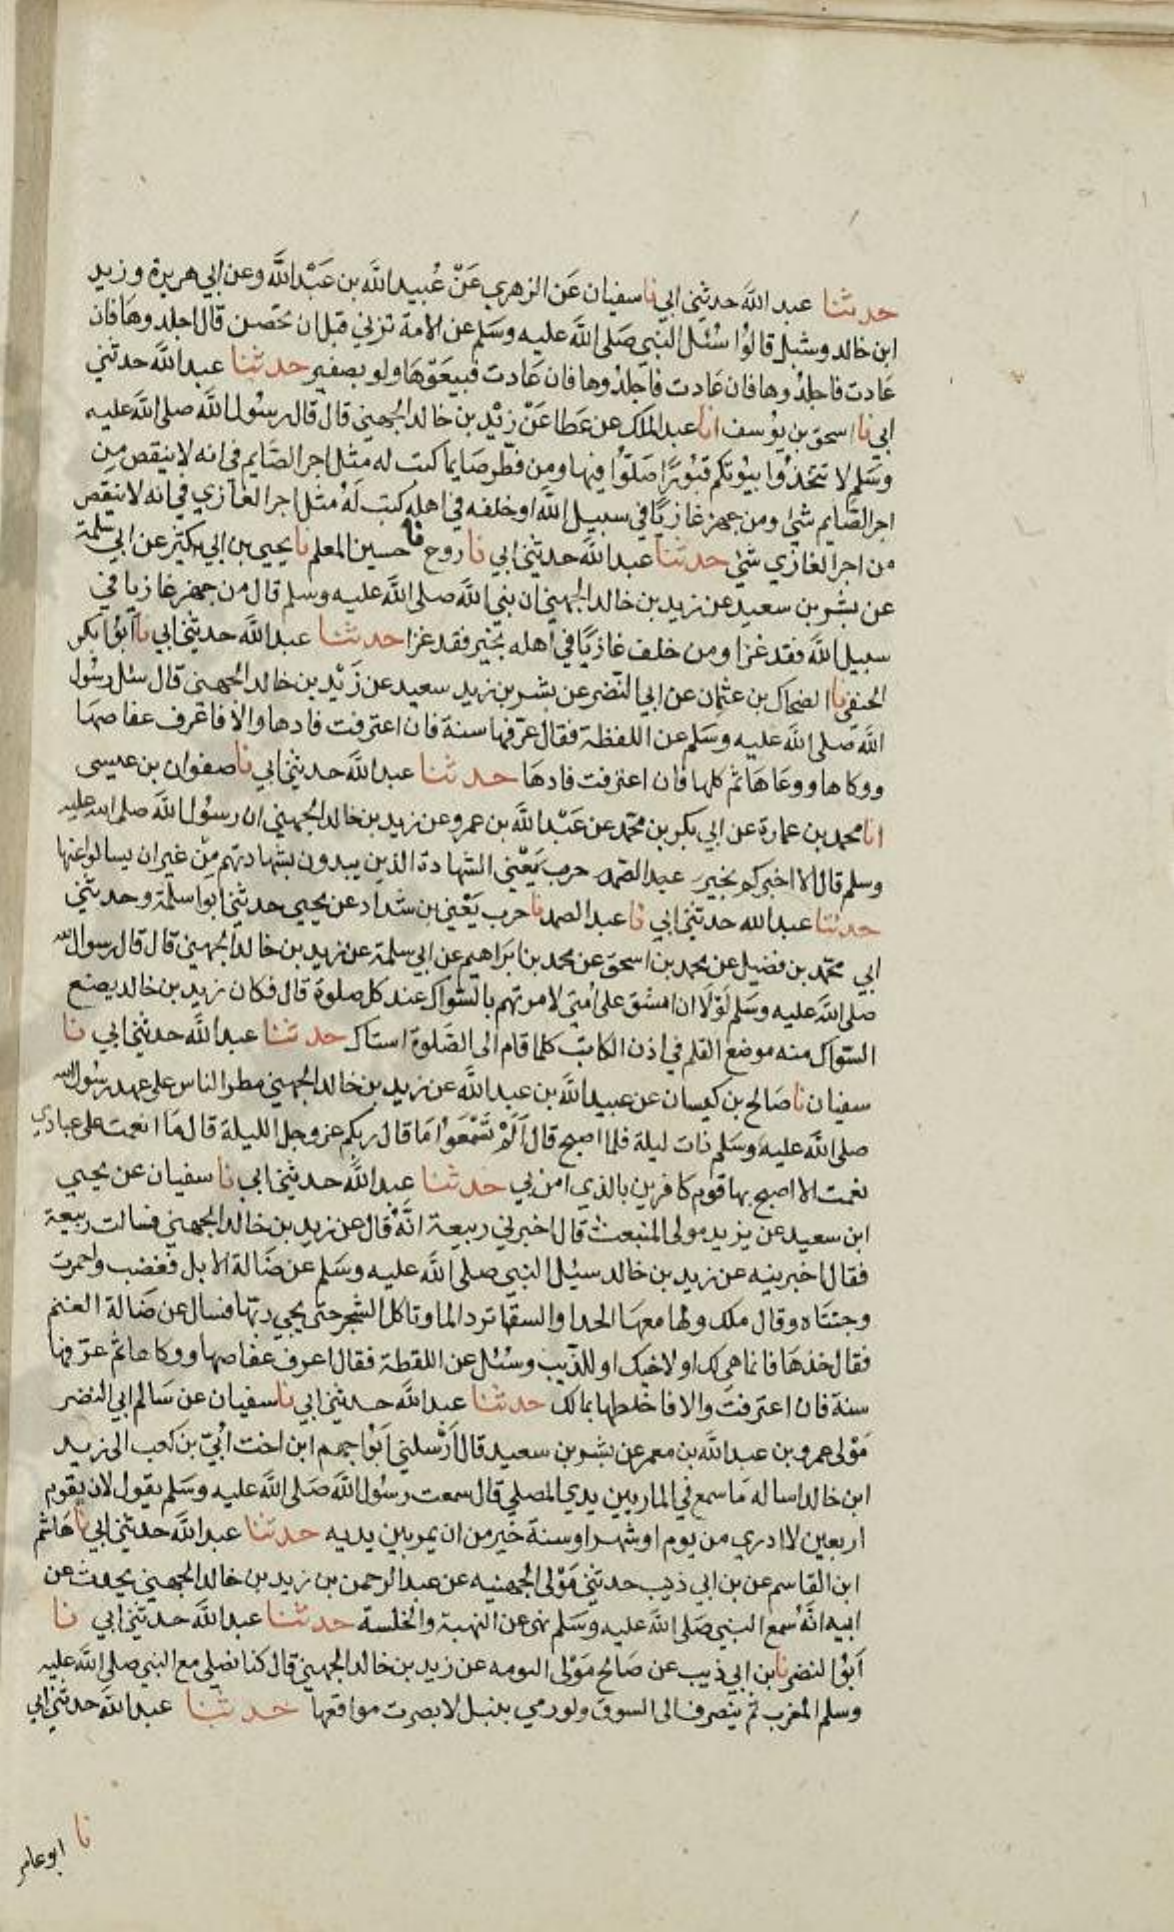 حدثنا عبد الله حدثني ابي نا سفيان عن الزهري عَنْ عُبيد الله بن عَبْد الله وعن ابي هريرة وزيد
ابن خالد وشبل قالوا سُئل النبي صَلى الله عليه وسَلم عن الامة تزني قبل ان تحصن قال اجلدوها فان
عَادت فاجلدُوها فان عَادت فاجلدُوها فان عَادت فبيعَوّهَا ولو بصفير حدثنا عبد الله حدثني
ابي نا اسحق بن يُوسف انا عبد الملك عن عَطا عَنْ زيْد بن خالد الجُهني قال قال رسُول الله صلى الله عليه
وسَلم لا تتخذُوا بيُوتكم قبُورًا صَلوّا فيها ومن فطّر صَايما كتب له مثل اجر الصَايم في انه لا ينقص من
اجر الصَّايم شئ ومن جهز غازيًا في سبيل الله او خلفه في اهله كتب لهُ مثل اجر الغازي في انه لا ينقص
من اجر الغازي شئ حدثنا عبد الله حدثني ابي نا روح نا حسين المعلم نا يحيى بن ابي كثير عن ابي سلمة
عن بشر بن سعيد عن زيد بن خالد الجهني ان نبي الله صلى الله عليه وسلم قال من جهز غازيا في
سبيل الله فقد غزا ومن خلف غازيًا في اهله بخير فقد غزا حدثنا عبد الله حدثني ابي نا ابُو بكر
الحنفي نا الضحاك بن عثمان عن ابي النضر عن بشر بن زيد سعيد عن زَيْد بن خالد الجهني قال سئل رسُول
الله صَلى الله عليه وسَلم عن اللفظة فقال عرّفها سنة فان اعترفت فادها والا فاعرف عفاصهَا
ووكاها ووعَاهَا ثم كلها فان اعترفت فادهَا حدثنا عبد الله حديثني ابي نا صفوان بن عيسى
انا محمد بن عمارة عن ابي بكر بن محمّد عن عَبْد الله بن عمرو عن زيد بن خالد الجهني ان رسوُل الله صلى الله عليه
وسلم قال الا اخبركم بخير عبد الصمد حرب يَعْني الشهادة الذين يبدون بشهادتهم منّ غير ان يسالوا عنها
حدثنا عبد الله حدثني ابي نا عبد الصمد نا حرب يَعْني بن شداد عن يحيى حدثني ابوا سلمة وحدثني
ابي محمّد بن فضيل عن محمد بن اسحق عن محمد بن ابرَاهيم عن ابي سلمة عن زيد بن خالد الجهني قال قال رسول الله
صلى الله عليه وسَلم لوْلَا ان اشق على امُتي لامرتهم بالسّواك عند كل صلوة قال فكان زيد بن خالد يضع
السّواك منه موضع القلم في اذن الكاتب كلما قام الى الصَلوة استاك حدثنا عبد الله حدثني ابي نا
سفيان نا صَالح بن كيسان عن عبيد الله بن عبد الله عن زيد بن خالد الجهني مطر الناس على عهد رسُول الله
صلى الله عليه وسَلم ذات ليلة فلما اصبح قال اَلَمْ تَسْمَعَوُا مَا قال ربكم عز وجل الليلة قال مَا انعمت على عبادي
نعمت الا اصبح بها قوم كافرين بالذي امن بي حدثنا عبد الله حديثني ابي نا سفيان عن يحيى
ابن سعيد عن يزيد مولى المنبعث قال اخبرني ربيعة انّهُ قال عن زيد بن خالد الجهني فسالت ربيعة
فقال اخبرينه عن زيد بن خالد سيُل النبي صلى الله عليه وسَلم عن ضَالة الابل فغضب واحمرت
وجنتاه وقال ملك ولها معهَا الحدا والسقا ترد الما وتاكل الشجر حتى يجي ربّها فسال عن ضَالة الغنم
فقال خذهَا فانما هي لك او لاخيك او للذيب وسُئل عن اللقطة فقال اعرف عفاصها ووكاها ثم عرّفها
سنة فان اعترفت والا فاخلطها بمالك حدثنا عبد الله حدثني ابي نا سفيان عن سَالم ابي النضر
مَوْلى عمرو بن عبد الله بن معمر عن بشر بن سعيد قال اَرْسلني اَبُوا جهم ابن اخت اُبيّ بن كعب الى زيد
ابن خالد اساله مَا سمع في المار بين يدي المصلي قال سمعت رسُول الله صَلى الله عليه وسَلم يقول لان يقوم
اربعين لا ادري من يوم او شهر او سنة خير من ان يمر بين يديه حدثنا عبد الله حدثني ابي نا هَاشم
ابن القاسم عن بن ابي ذيب حدثني مَوْلى الجهنيه عن عبد الرحمن بن زيد بن خالد الجهني يحدث عن
ابيه انّهُ سمع النبي صَلى الله عليه وسَلم نهى عن النهبة والخلسة حدثنا عبد الله حدثني ابي نا
اَبُو النضر نا بن ابي ذيب عن صَالح مَوْلى التومه عن زيد بن خالد الجهني قال كنا نصلي مع النبي صلى الله عليه
وسلم المغرب ثم ننصرف الى السوق ولو رمي بنبل لابصرت مواقعها حدثنا عبد الله حدثني ابي
نا
ابو عامر